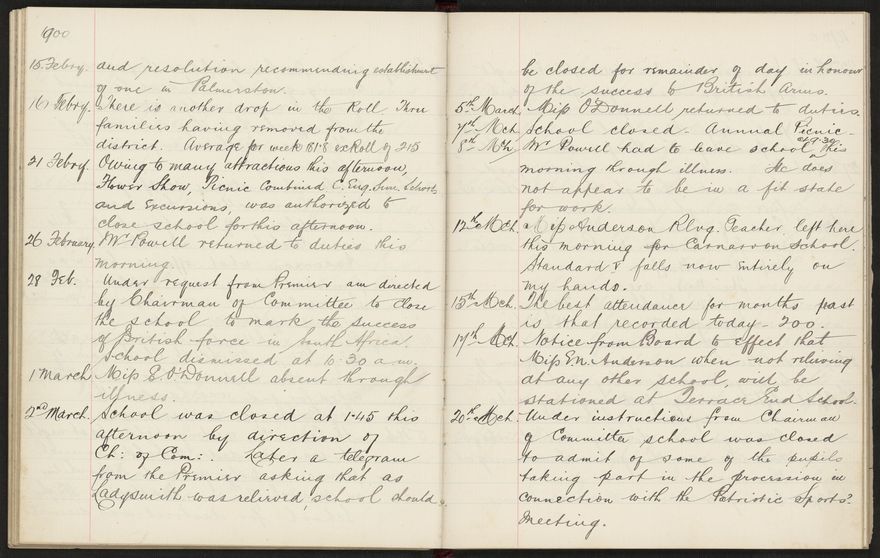 1900
15 Febry. and resolution recommending establishment
of one in Palmerston.
16 Febry. There is another drop in the Roll Three
families having removed from the
district. Average for week 181.8 ex Roll of 215
21 Febry. Owing to many attractions this afternoon,
Flower Show, Picnic Combined C. Eng. Sun. Schools
and Excursions, was authorized to
close school for this afternoon.
26 February Mr Powell returned to duties this
morning.
28 Feb. Under request from Premier am directed
by Chairman of Committee to close
the school to mark the success
of British force in South Africa.
School dismissed at 10.30 a.m.
1 March Miss E. O'Donnell absent through
illness.
2nd March. School was closed at 1-45 this
afternoon by direction of
Ch: of Com: . Later a telegram
from the Premier asking that as
Ladysmith was relieved, school should
be closed for remainder of day in honour
of the success to British Arms.
5th March. Miss O'Donnell returned to duties.
7th Mch School closed - Annual Picnic -
8th Mch. Mr Powell had to leave school at 9.30 this
morning through illness. He does
not appear to be in a fit state
for work.
12th Mch. Miss Anderson Rlvg. Teacher, left here
this morning for Carnarvon School.
Standard V falls now entirely on
my hands.
15th Mch. The best attendance for months past
is that recorded today - 200.
17th Mch. Notice from Board to effect that
Miss E.N. Anderson when not relieving
at any other school, will be
stationed at Terrace End School.
20th Mch. Under instructions from Chairman
of Committee school was closed
to admit of some of the pupils
taking part in the procession in
connection with the Patriotic Sports
Meeting.